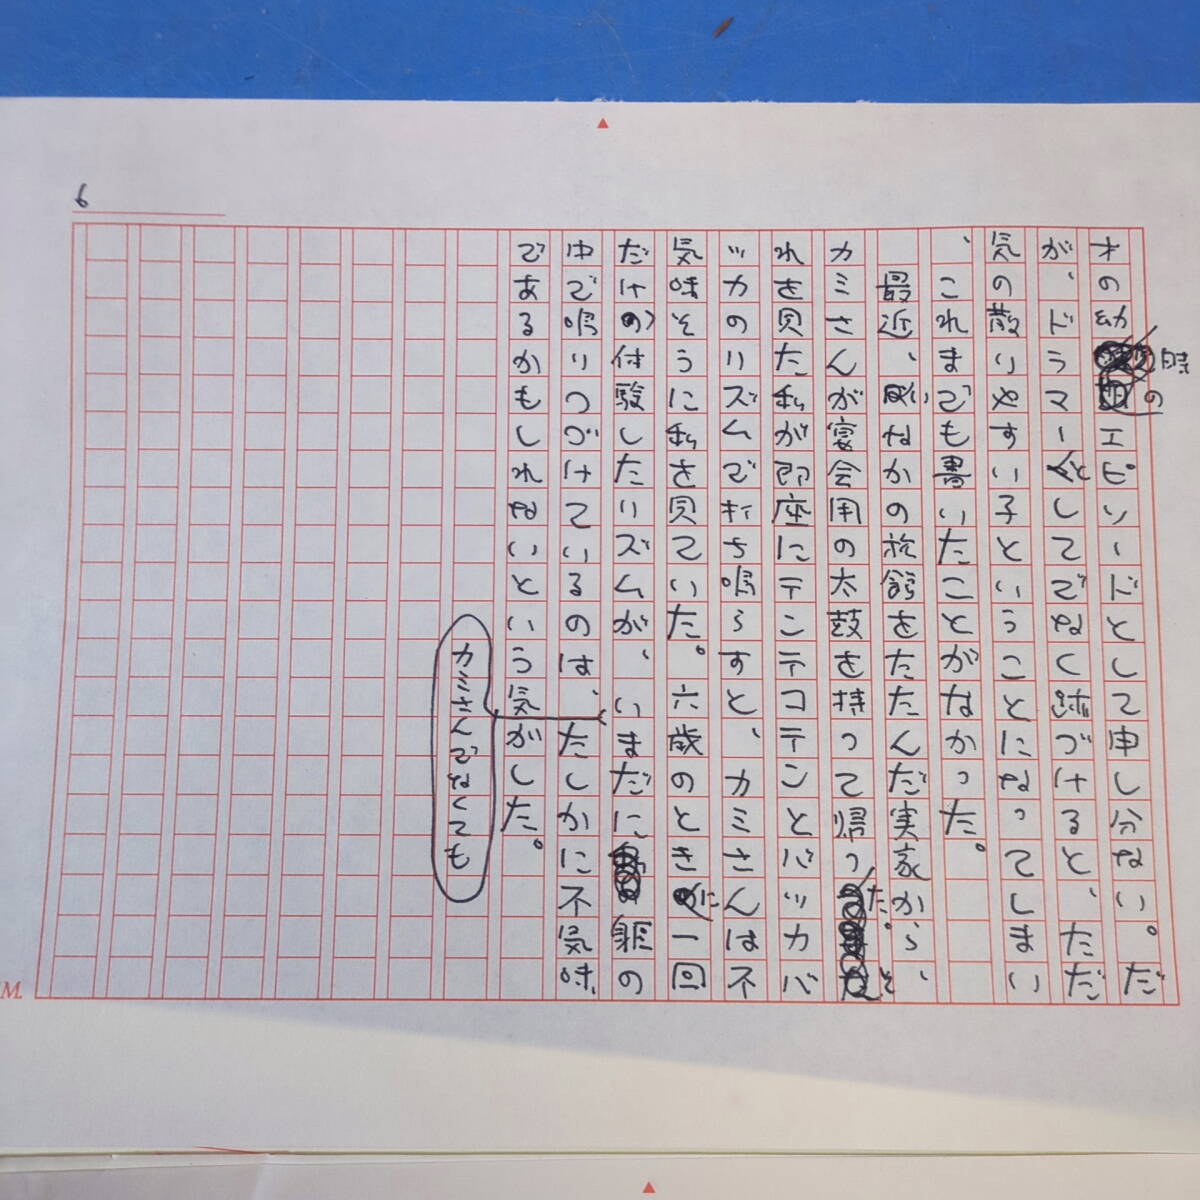 6
才の幼時のエピソードとして申し分ない。だ
が、ドラマーとしてでなく跡づけると、ただ
気の散りやすい子ということになってしまい
、これまでも書いたことがなかった。
最近、いなかの旅館をたたんだ実家から、
カミさんが宴会用の太鼓を持って帰った。そ
れを見た私が即座にテンテコテンとバッカバ
ッカのリズムで打ち鳴らすと、カミさんは不
気味そうに私を見ていた。六歳のときに一回
だけの付験したリズムが、いまだに躯の
中で鳴りつづけているのは、たしかに不気味
であるかもしれないという気がした。
カミさんでなくても
M.